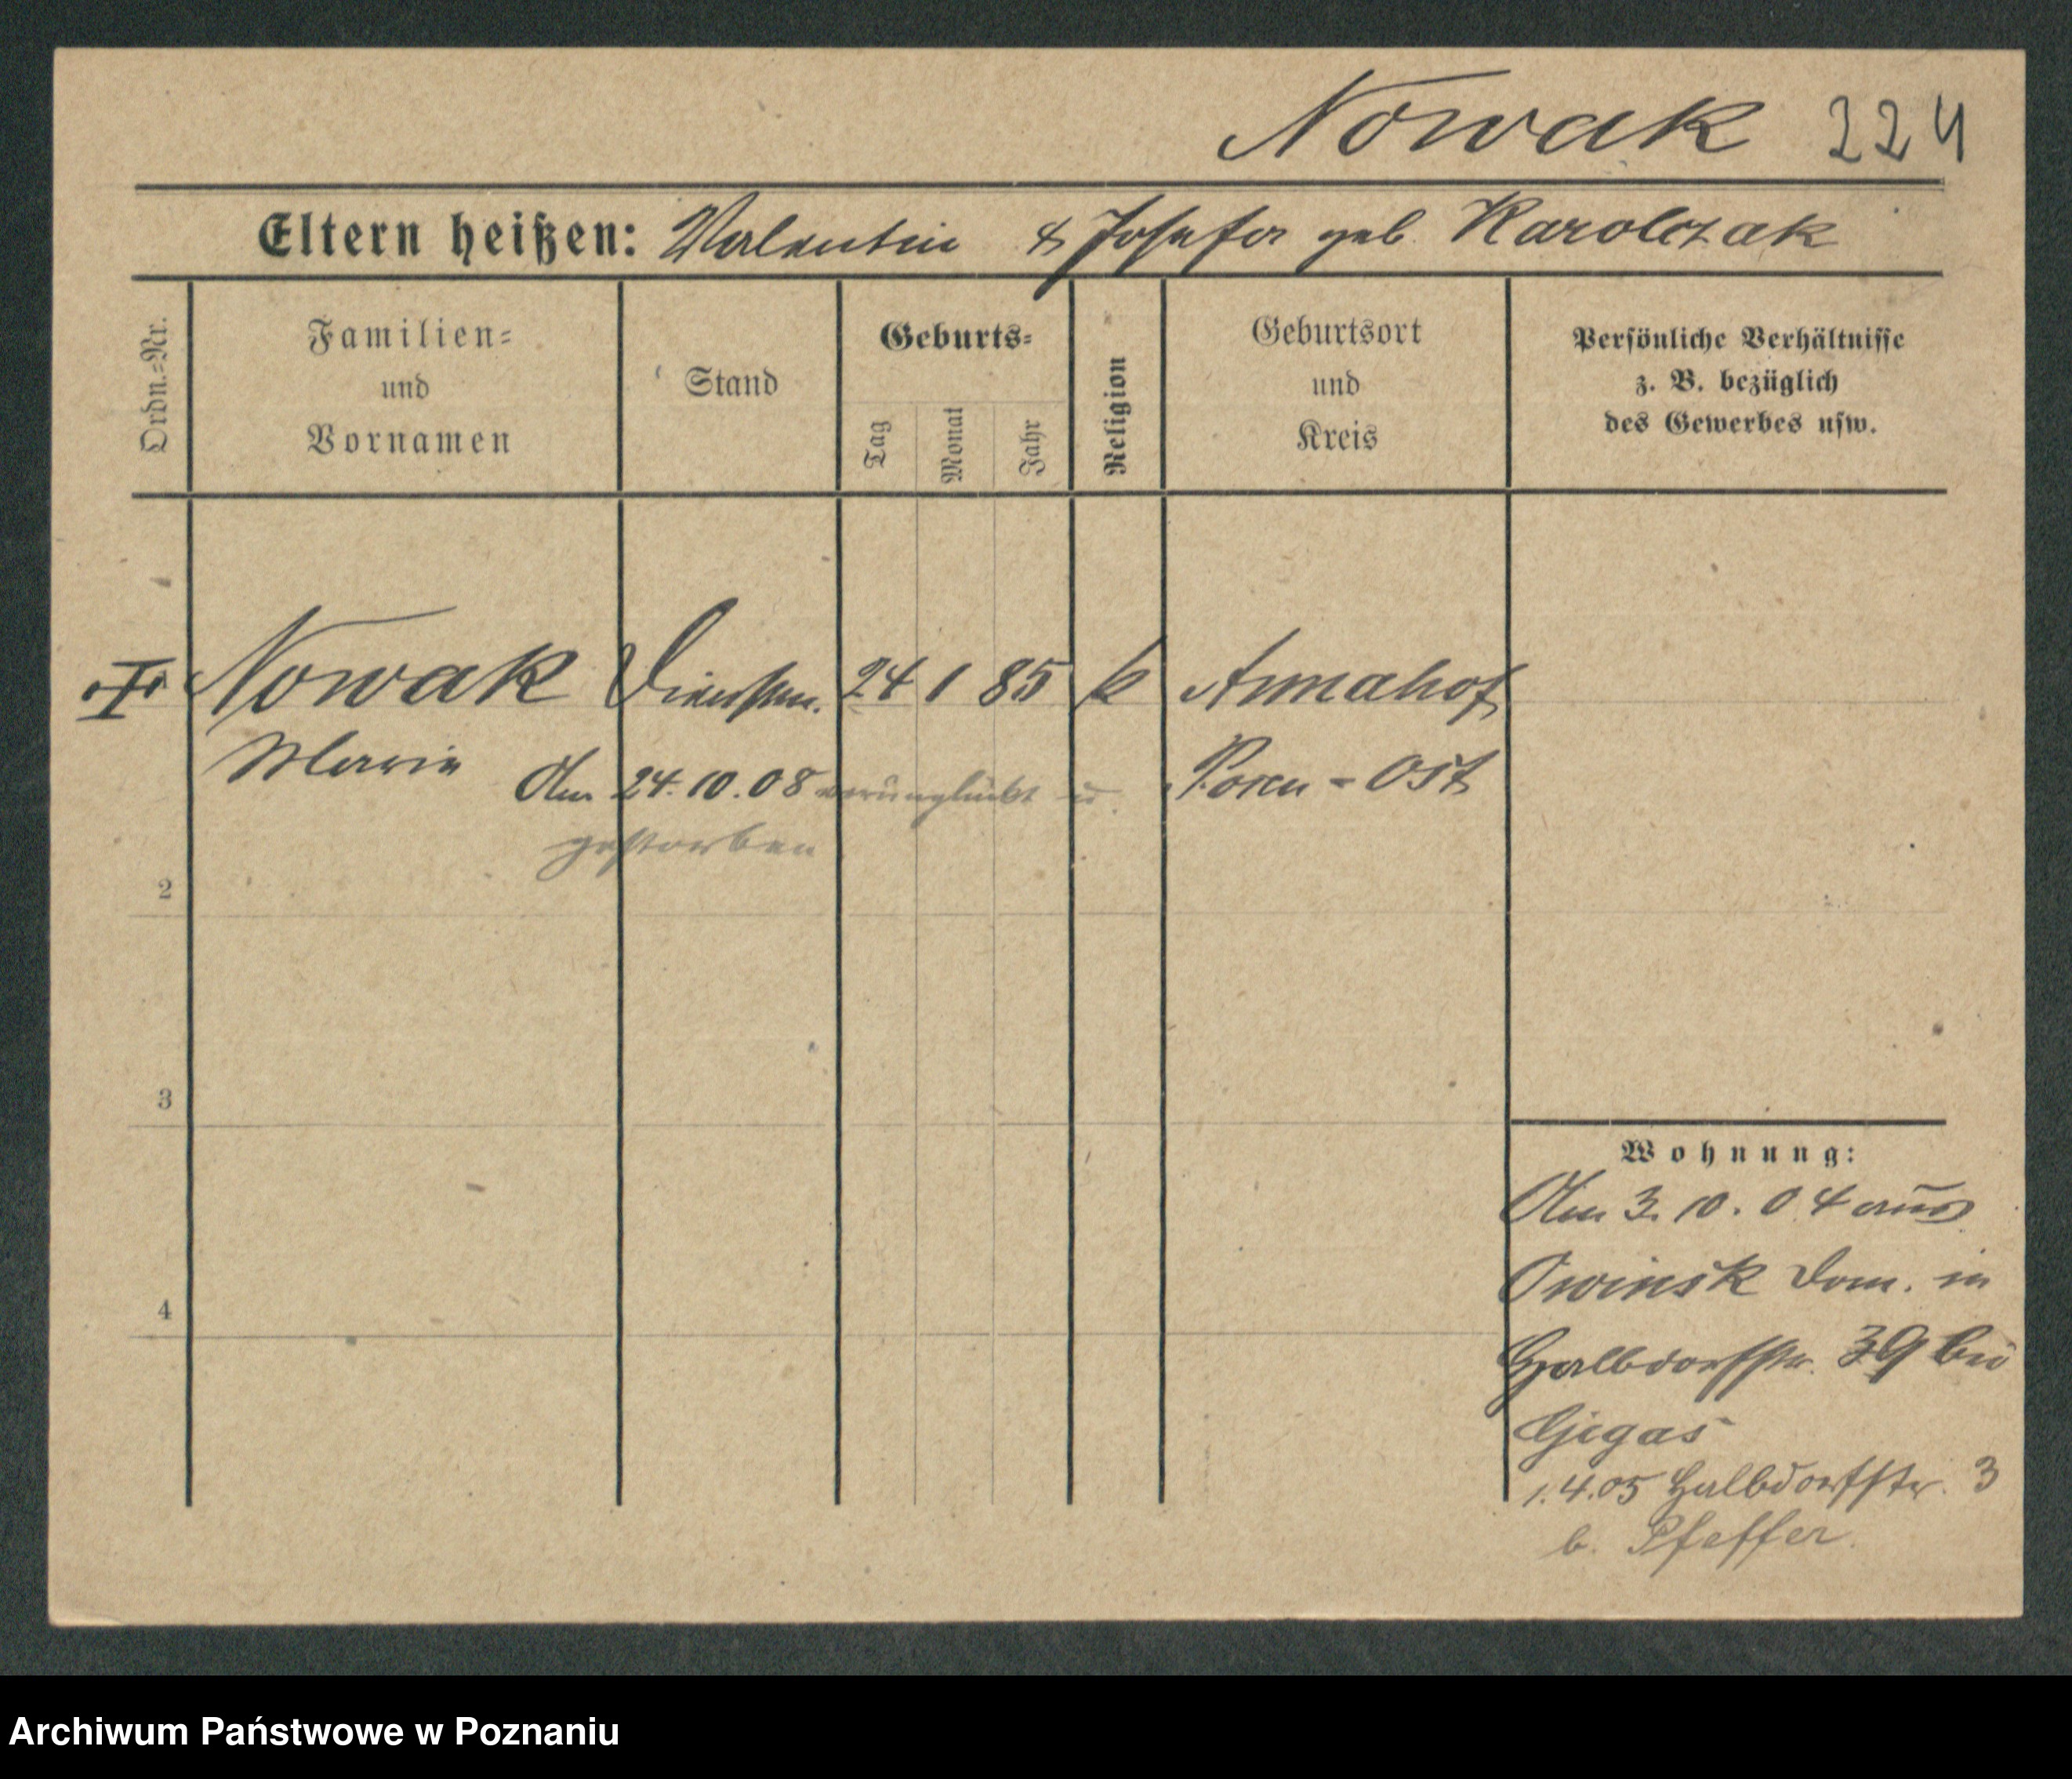 Nowak 224
Eltern heißen: Valentin & Josefa geb. Karolczak
Ordn.-Nr.
Familien-
und
Vornamen
Stand
Geburts-
Tag
Monat
Jahr
Religion
Geburtsort
und
Kreis
Persönliche Verhältnisse
z. B. bezüglich
des Gewerbes usw.
Nowak 24 1 85 k Annahof
Maria Posen-Ost
Am 24.10.08 verunglückt u.
gestorben
2
3
4
Wohnung:
Am 3.10.04 aus
Owinsk Dom. in
Halbdorfstr. 39 bei
Gjegas
1.4.05 Halbdorfstr. 3
b. Pfeffer.
Archiwum Państwowe w Poznaniu